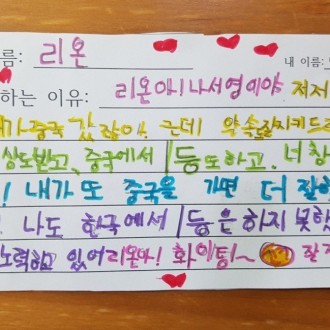 름: 리온 내 이름:
하는 이유: 리온아! 나 서영이야 저저
가 중국 갔잖아. 근데 약속을 지키드
상도받고, 중국에서 1등도하고. 너 참
! 내가 또 중국을 가면 더 잘할
나도 한국에서 1등은 하지 못했
노력하고 있어 리온아! 화이팅~ 잘